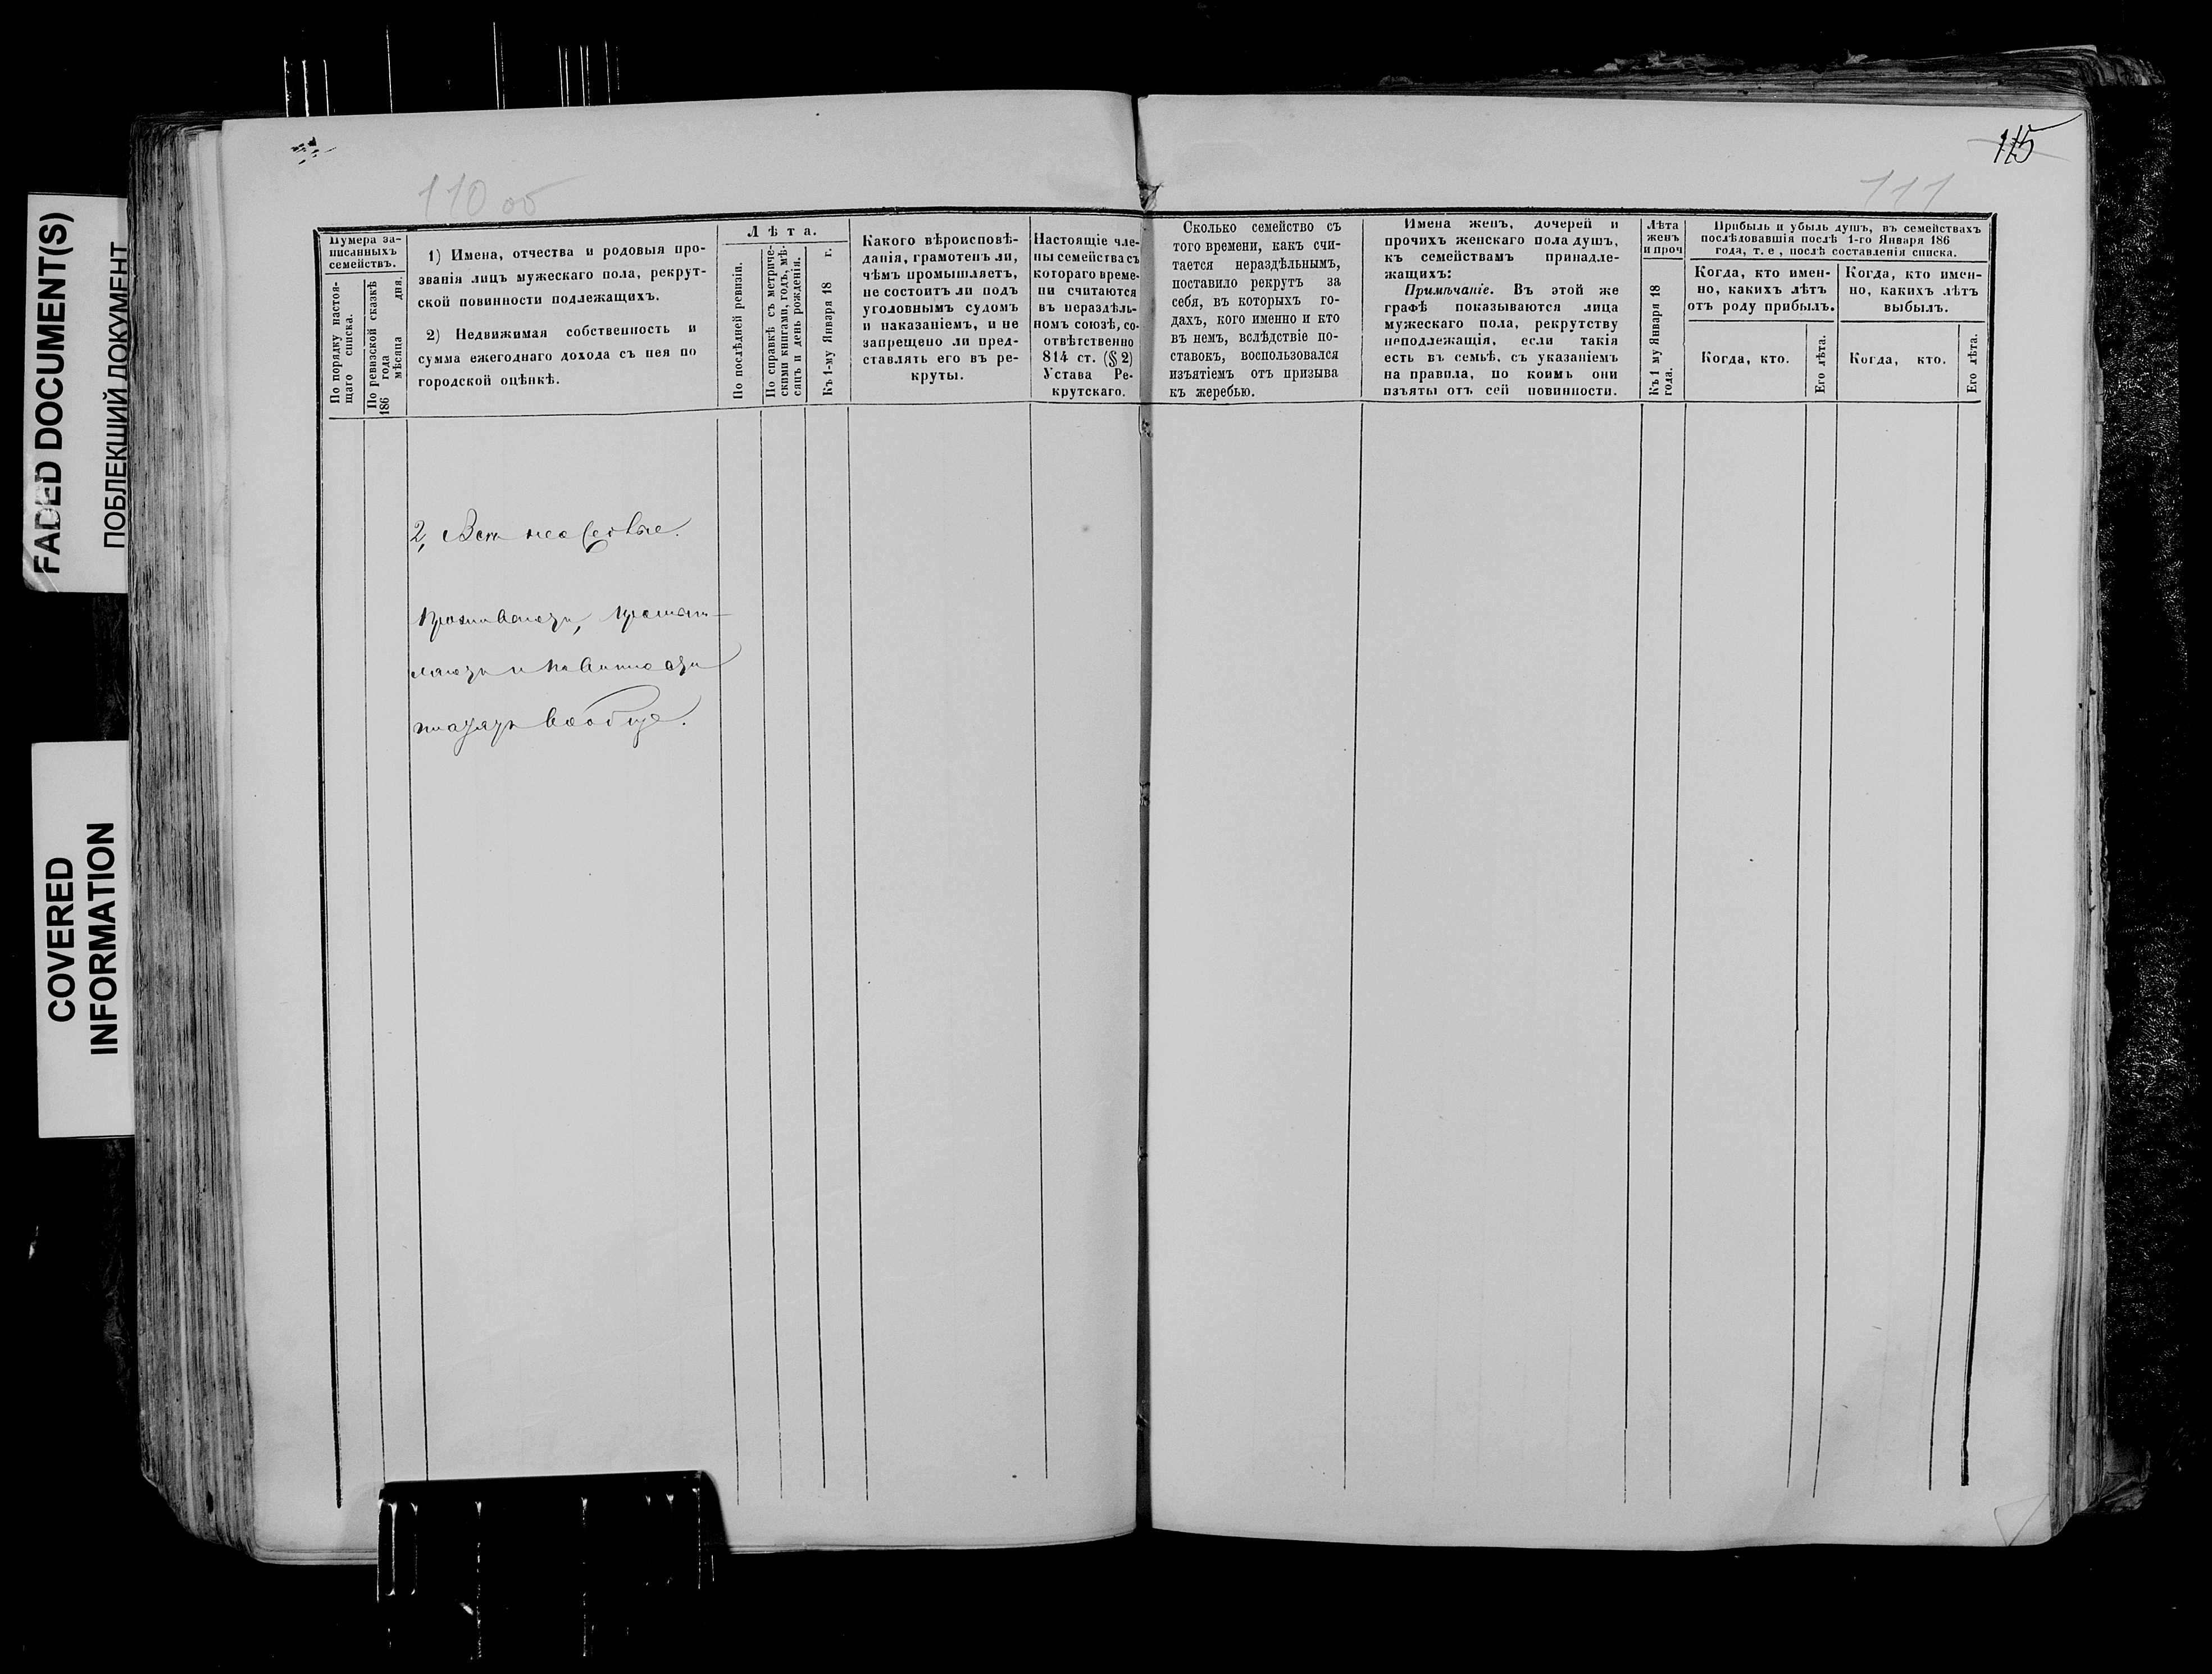 FADED DOCUMENT(S)
ПОБЛЕКШИЙ ДОКУМЕНТ
COVERED
INFORMATION
110 об
115
111
Нумера за-
писанныхъ
семействъ.
По порядку настоя-
щаго списка.
По ревизской сказкѣ
186 года мѣсяца дня.
1) Имена, отчества и родовыя про-
званія лицъ мужескаго пола, рекрут-
ской повинности подлежащихъ.
2) Недвижимая собственность и
сумма ежегоднаго дохода съ нея по
городской оцѣнкѣ.
Лѣта.
По послѣдней ревизіи.
По справкѣ съ метриче-
скими книгами, годъ, мѣ-
сяцъ и день рожденія.
Къ 1-му Января 18 г.
Какого вѣроисповѣ-
данія, грамотенъ ли,
чѣмъ промышляетъ,
не состоитъ ли подъ
уголовнымъ судомъ
и наказаніемъ, и не
запрещено ли пред-
ставлять его въ ре-
круты.
Настоящіе чле-
ны семейства съ
котораго време-
ни считаются
въ нераздѣль-
номъ союзѣ, со-
отвѣтственно
814 ст. (§ 2)
Устава Ре-
крутскаго.
Сколько семейство съ
того времени, какъ счи-
тается нераздѣльнымъ,
поставило рекрутъ за
себя, въ которыхъ го-
дахъ, кого именно и кто
въ немъ, вслѣдствіе по-
ставокъ, воспользовался
изъятіемъ отъ призыва
къ жеребью.
Имена женъ, дочерей и
прочихъ женскаго пола душъ,
къ семействамъ принадле-
жащихъ:
Примѣчаніе. Въ этой же
графѣ показываются лица
мужескаго пола, рекрутству
неподлежащія, если такія
есть въ семьѣ, съ указаніемъ
на правила, по коимъ они
изъяты отъ сей повинности.
Лѣта
женъ
и проч
Къ 1 му Января 18
года.
Прибыль и убыль душъ, въ семействахъ
послѣдовавшія послѣ 1-го Января 186
года, т. е, послѣ составленія списка.
Когда, кто имен-
но, какихъ лѣтъ
отъ роду прибылъ.
Когда, кто.
Его лѣта.
Когда, кто имен-
но, какихъ лѣтъ
выбылъ.
Когда, кто.
Его лѣта.
2,
Проживаютъ, промыш-
ляютъ и повинности
платятъ вообще.